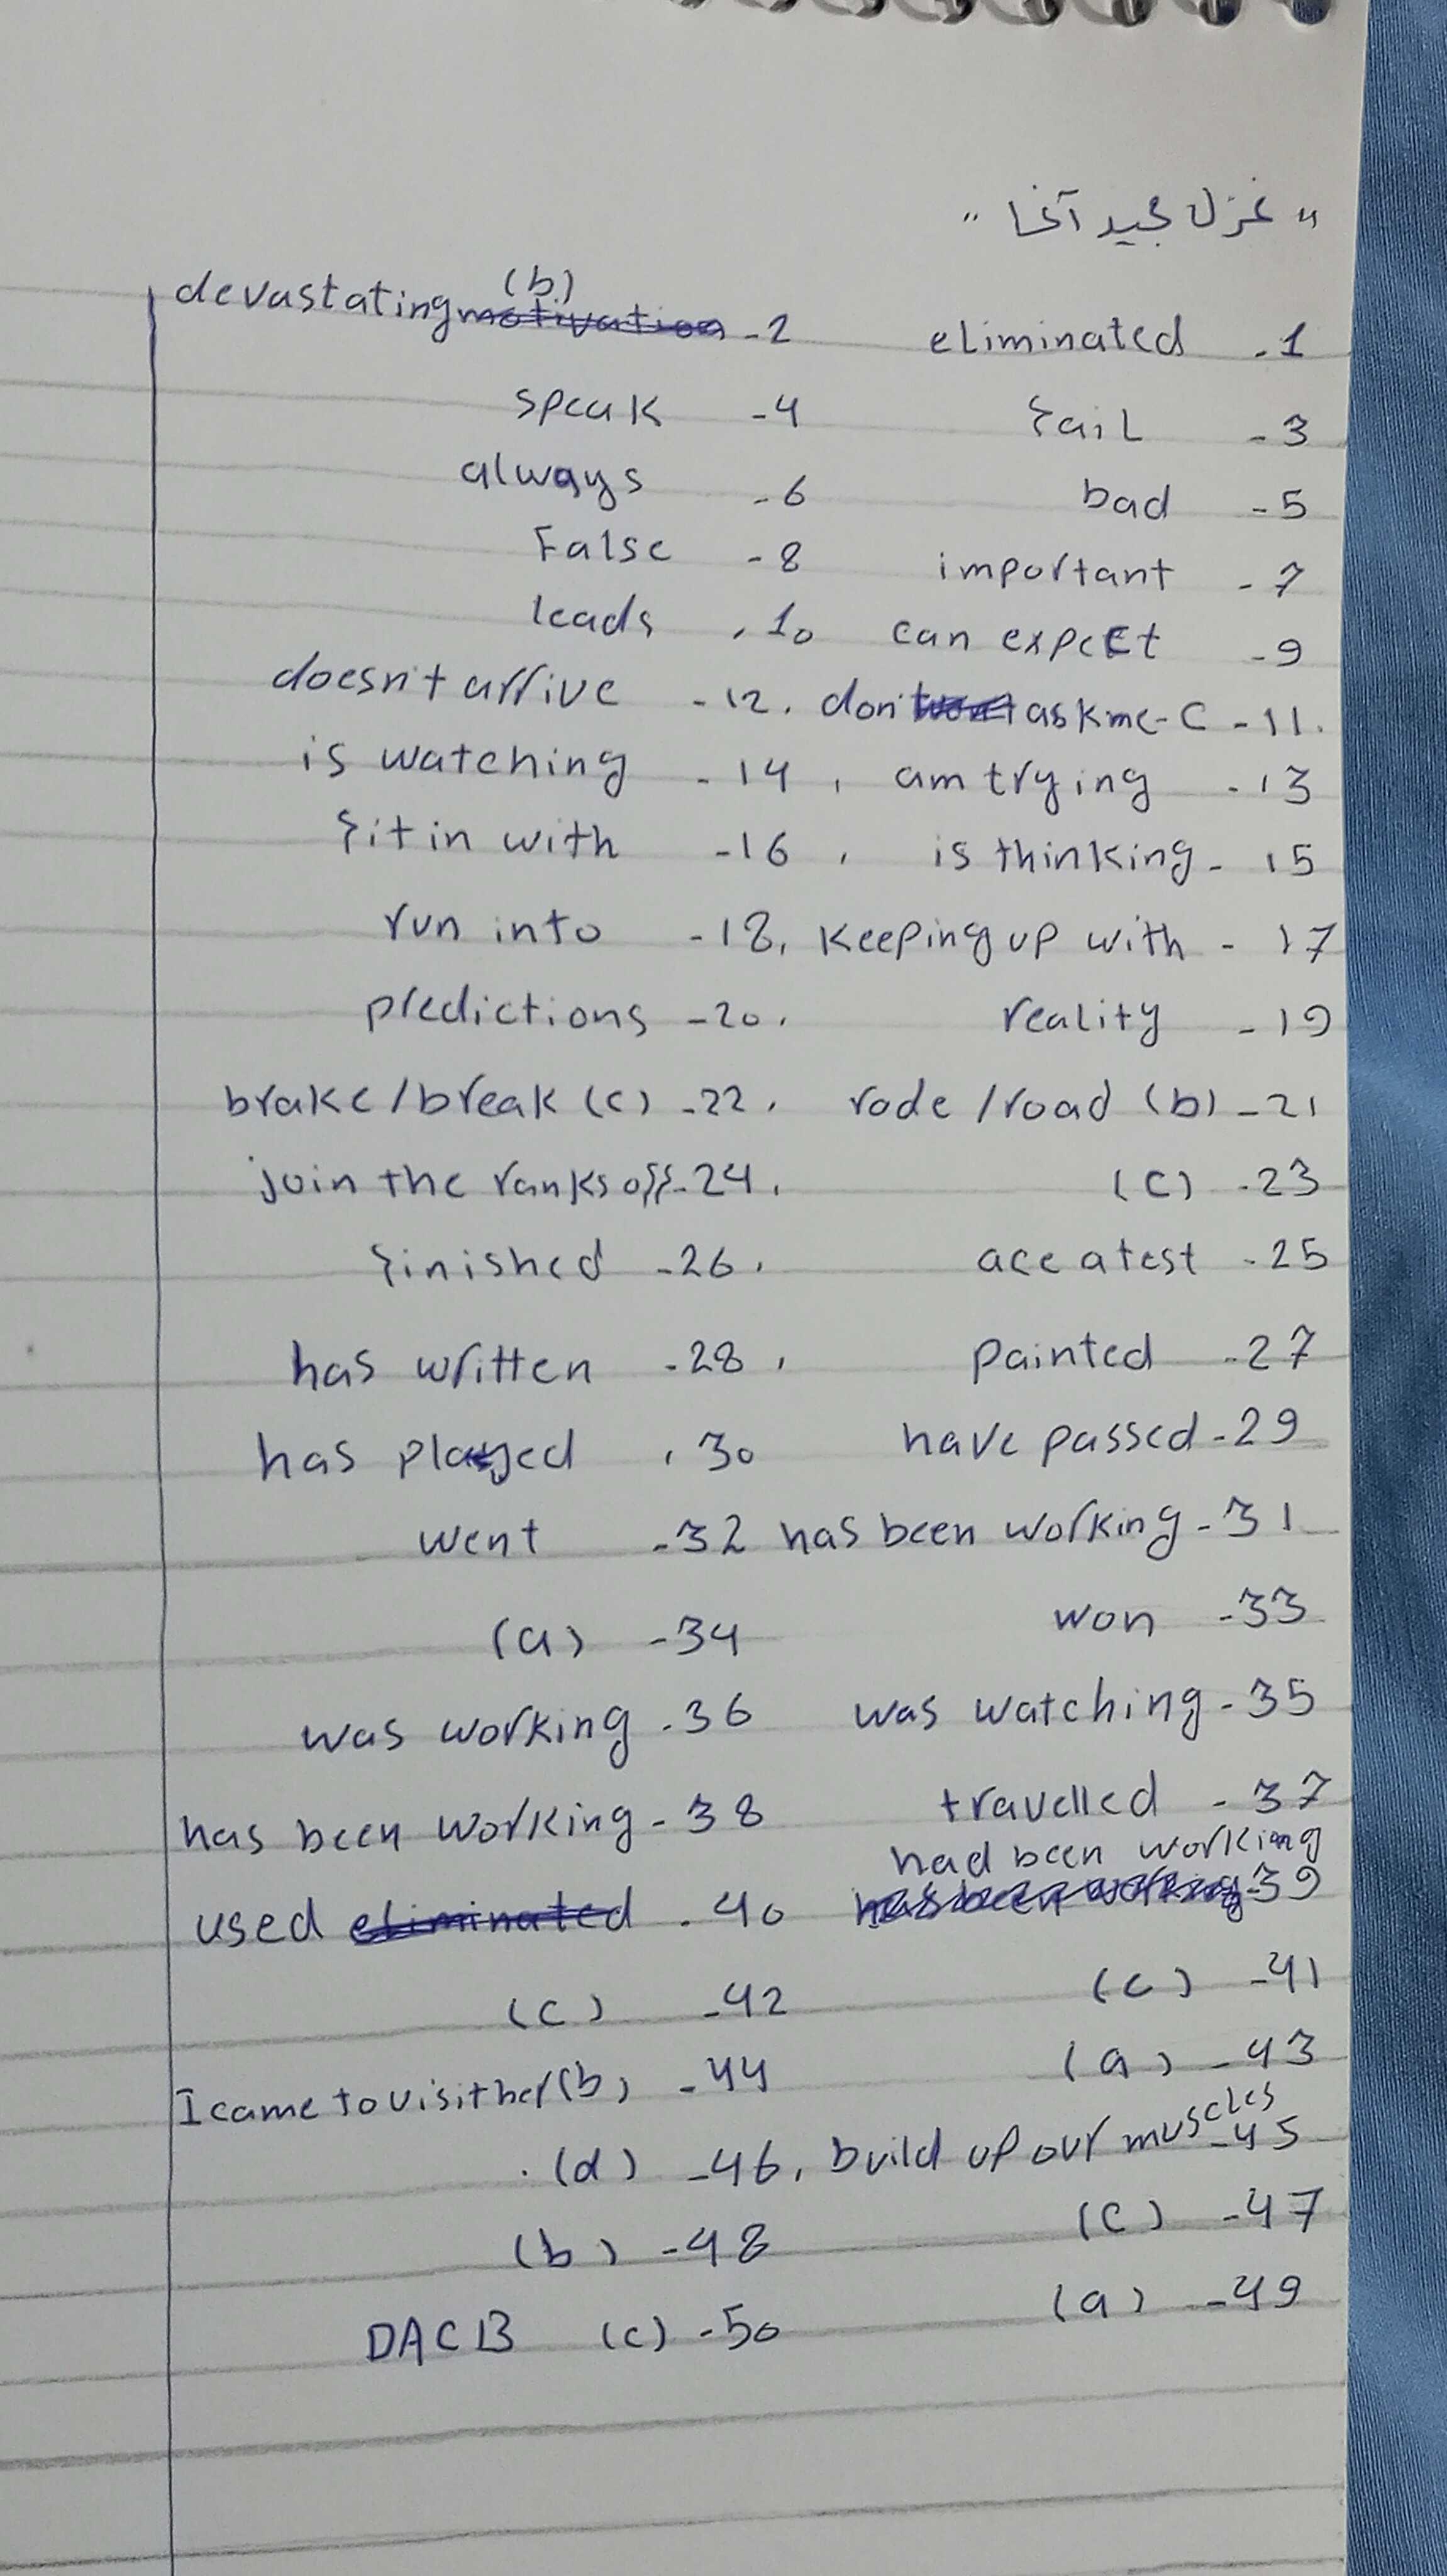 " غزل مجيد آغا "
1- eliminated 2- devastating (b)
3- fail 4- speak
5- bad 6- always
7- important 8- False
9- can expect 10. leads
11- don't ask me - C 12- doesn't arrive
13- am trying 14- is watching
15- is thinking 16- fit in with
17- Keeping up with 18- run into
19- reality 20- predictions
21- rode / road (b) 22- brake / break (c)
23- (c) 24- join the ranks off
25- ace a test 26- finished
27- painted 28- has written
29- have passed 30. has played
31- has been working 32- went
33- won 34- (a)
35- was watching 36- was working
37- travelled 38- has been working
39- had been working 40- used
41- (c) 42- (c)
43- (a) 44- I came to visit her (b)
45- build up our muscles 46- (d)
47- (c) 48- (b)
49- (a) 50- (c) DACB